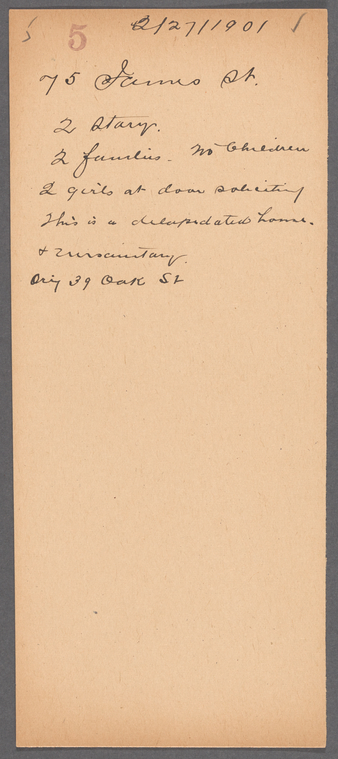 5 2/27/1901
75 James St.
2 Story.
2 families. No Children
2 girls at door soliciting
This is a delapedated home.
+ unsanitary.
Orig 39 Oak St